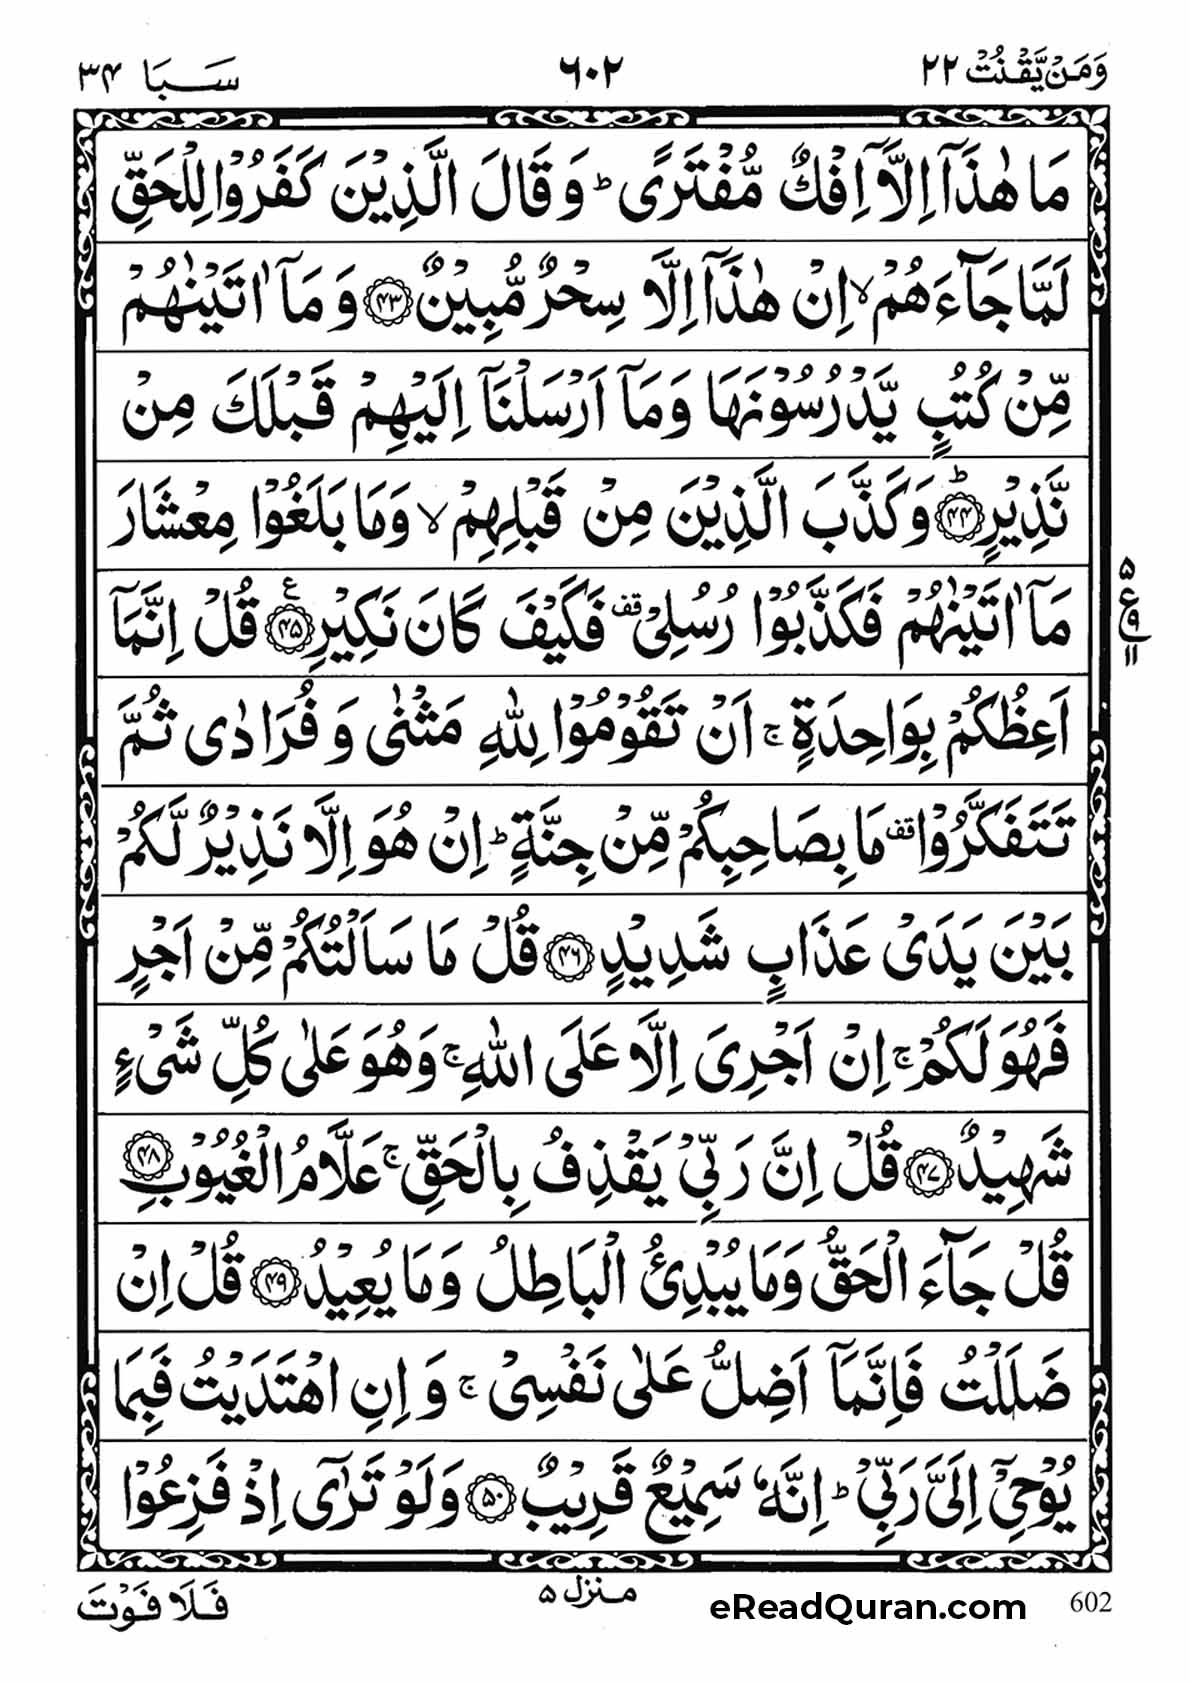 وَمَنْ يَّقْنُتْ ۲۲ ۶۰۲ سَبَا ۳۴
مَا هٰذَاۤ اِلَّاۤ اِفْكٌ مُّفْتَرًى ؕ وَ قَالَ الَّذِيْنَ كَفَرُوْا لِلْحَقِّ
لَمَّا جَآءَهُمْ ۙ اِنْ هٰذَاۤ اِلَّا سِحْرٌ مُّبِيْنٌ ﴿۴۳﴾ وَ مَاۤ اٰتَيْنٰهُمْ
مِّنْ كُتُبٍ يَّدْرُسُوْنَهَا وَمَاۤ اَرْسَلْنَاۤ اِلَيْهِمْ قَبْلَكَ مِنْ
نَّذِيْرٍ ؕ ﴿۴۴﴾ وَكَذَّبَ الَّذِيْنَ مِنْ قَبْلِهِمْ ۙ وَمَا بَلَغُوْا مِعْشَارَ
مَاۤ اٰتَيْنٰهُمْ فَكَذَّبُوْا رُسُلِيْ قف فَكَيْفَ كَانَ نَكِيْرِ ﴿۴۵﴾ ع قُلْ اِنَّمَاۤ
۵ ع ۹ ۱۱
اَعِظُكُمْ بِوَاحِدَةٍ ۚ اَنْ تَقُوْمُوْا لِلّٰهِ مَثْنٰى وَ فُرَادٰى ثُمَّ
تَتَفَكَّرُوْا قف مَا بِصَاحِبِكُمْ مِّنْ جِنَّةٍ ؕ اِنْ هُوَ اِلَّا نَذِيْرٌ لَّكُمْ
بَيْنَ يَدَىْ عَذَابٍ شَدِيْدٍ ﴿۴۶﴾ قُلْ مَا سَاَلْتُكُمْ مِّنْ اَجْرٍ
فَهُوَ لَكُمْ ۚ اِنْ اَجْرِىَ اِلَّا عَلَى اللّٰهِ ۚ وَهُوَ عَلٰى كُلِّ شَىْءٍ
شَهِيْدٌ ﴿۴۷﴾ قُلْ اِنَّ رَبِّيْ يَقْذِفُ بِالْحَقِّ ۚ عَلَّامُ الْغُيُوْبِ ﴿۴۸﴾
قُلْ جَآءَ الْحَقُّ وَمَا يُبْدِئُ الْبَاطِلُ وَمَا يُعِيْدُ ﴿۴۹﴾ قُلْ اِنْ
ضَلَلْتُ فَاِنَّمَاۤ اَضِلُّ عَلٰى نَفْسِىْ ۚ وَ اِنِ اهْتَدَيْتُ فَبِمَا
يُوْحِىْۤ اِلَىَّ رَبِّيْ ؕ اِنَّهٗ سَمِيْعٌ قَرِيْبٌ ﴿۵۰﴾ وَلَوْ تَرٰۤى اِذْ فَزِعُوْا
فَلَا فَوْتَ منزل ۵ eReadQuran.com 602